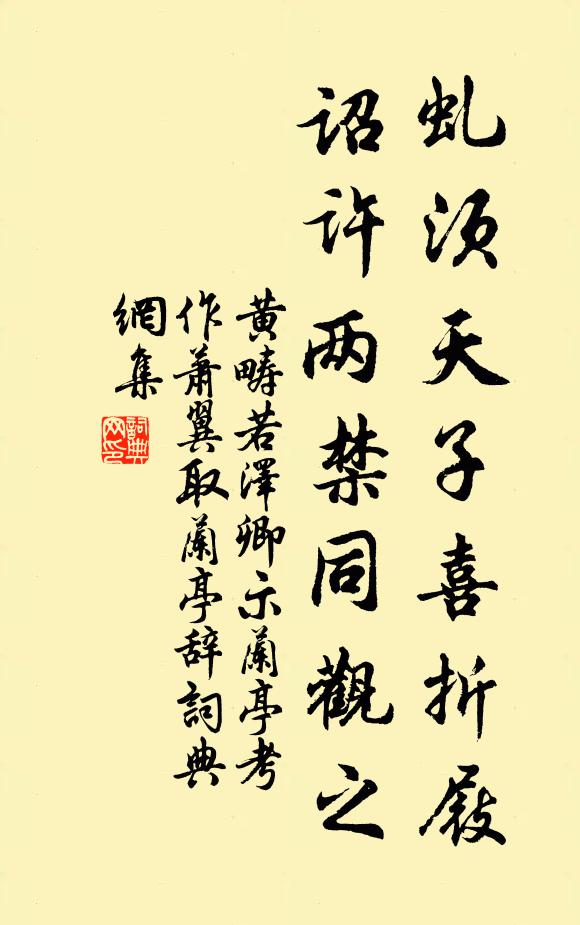 虬须天子喜折屐
诏许两禁同觀之
黄畴若澤卿示蘭亭考
作蕭翼取蘭亭辞詞典
網集
詞典網印